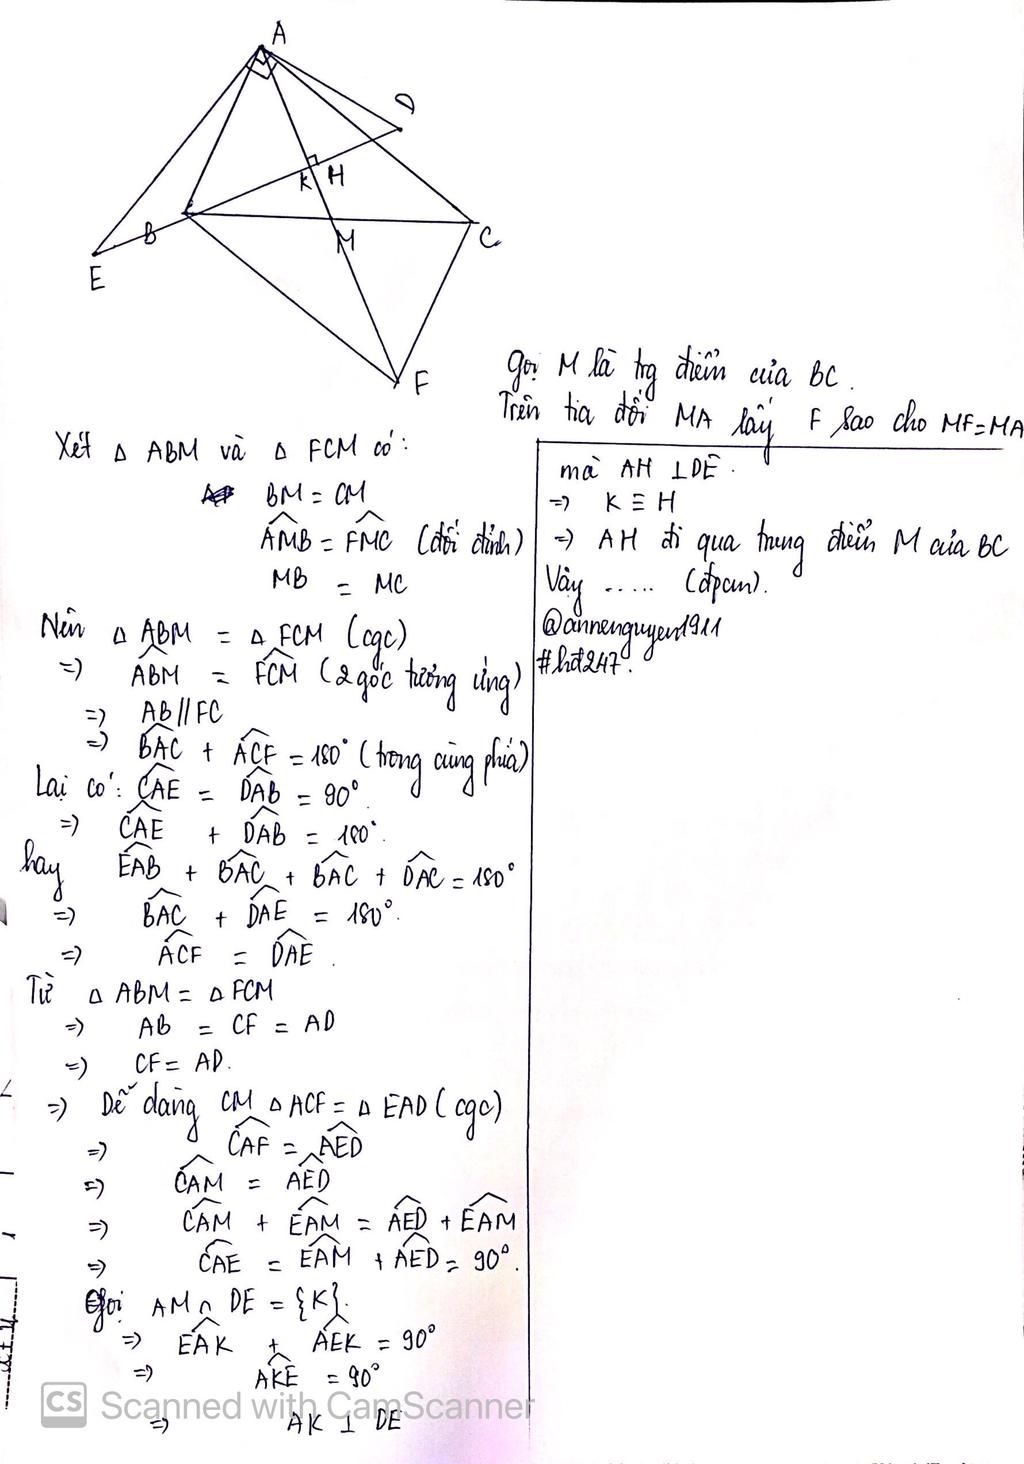 A
D
K H
B
M
C
E
F
Gọi M là trg điểm của BC.
Trên tia đối MA lấy F sao cho MF=MA
Xét Δ ABM và Δ FCM có:
BM = CM
AMB = FMC (đối đỉnh)
MB = MC
Nên Δ ABM = Δ FCM (cgc)
=> ABM = FCM (2 góc tương ứng)
=> AB//FC
=> BAC + ACF = 180° (trong cùng phía)
Lại có: CAE = DAB = 90°
=> CAE + DAB = 180°.
hay EAB + BAC + BAC + DAC = 180°
=> BAC + DAE = 180°.
=> ACF = DAE.
Từ Δ ABM = Δ FCM
=> AB = CF = AD
=> CF = AD.
=> Dễ dàng CM Δ ACF = Δ EAD (cgc)
=> CAF = AED
=> CAM = AED
=> CAM + EAM = AED + EAM
=> CAE = EAM + AED = 90°.
Gọi AM ∩ DE = {K}.
=> EAK + AEK = 90°
=> AKE = 90°
=> AK ⊥ DE
mà AH ⊥ DE.
=> K ≡ H
=> AH đi qua trung điểm M của BC
Vậy ..... (đpcm).
@annenguyen1911
#hđ247.
CS Scanned with CamScanner